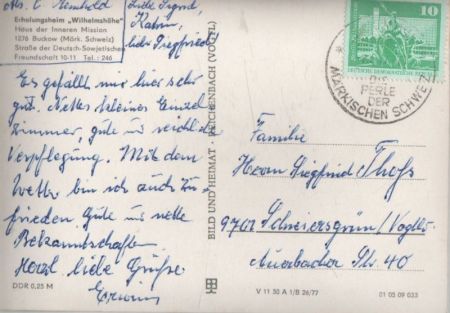 Abs. E. Reinhold
Erholungsheim „Wilhelmshöhe"
Haus der Inneren Mission
1276 Buckow (Märk. Schweiz)
Straße der Deutsch-Sowjetischen
Freundschaft 10-11 Tel.: 246
Liebe Sigrid,
Katrin,
lieber Siegfried
Es gefällt mir hier sehr
gut. Nettes kleines Einzel
zimmer, gute u. reichliche
Verpflegung. Mit dem
Wetter bin ich auch zu
frieden Gute u. nette
Bekanntschaften
Herzl. liebe Grüße
Erwin
DDR 0,25 M
BILD UND HEIMAT · REICHENBACH (VOGTL)
10
DEUTSCHE DEMOKRATISCHE REPUBLIK
DIE
PERLE
DER
MÄRKISCHEN SCHWEIZ
Familie
Herrn Siegfried Thoß
9701 Schreiersgrün/Vogtl.
Auerbacher Str. 40
V 11 50 A 1/B 26/77
01 05 09 033